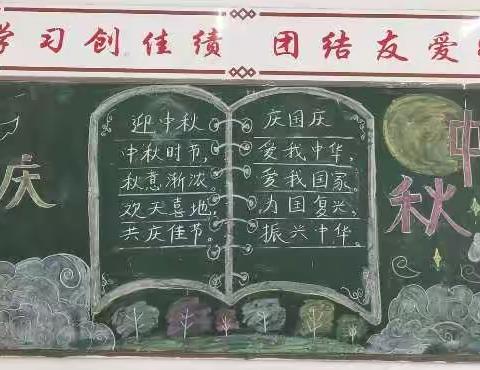 学习创佳绩 团结友爱
庆
迎中秋
中秋时节,
秋意渐浓。
欢天喜地,
共庆佳节。
庆国庆
爱我中华,
爱我国家。
为国复兴,
振兴中华。
中秋